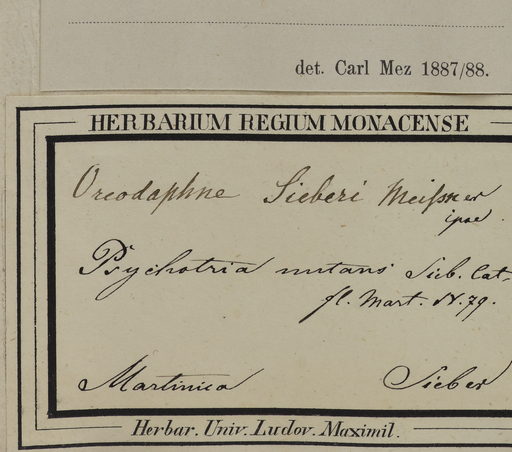 det. Carl Mez 1887/88.
HERBARIUM REGIUM MONACENSE
Oreodaphne Sieberi Meiſsner
ipse.
Psychotria nutans Sieb. Cat.
fl. Mart. N. 79.
Martinica Sieber
Herbar. Univ. Ludov. Maximil.